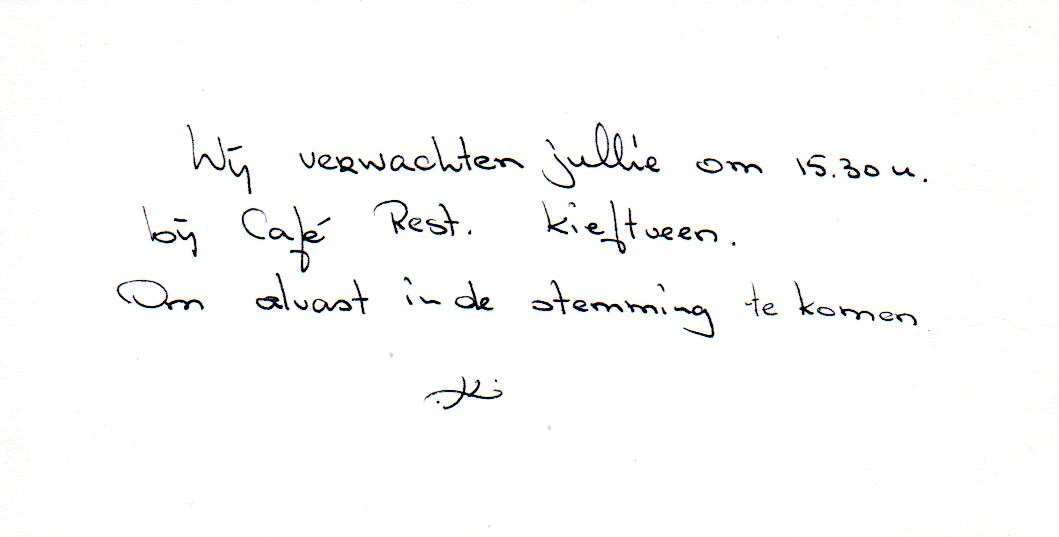 Wij verwachten jullie om 15.30 u.
bij Café Rest. Kieftveen.
Om alvast in de stemming te komen